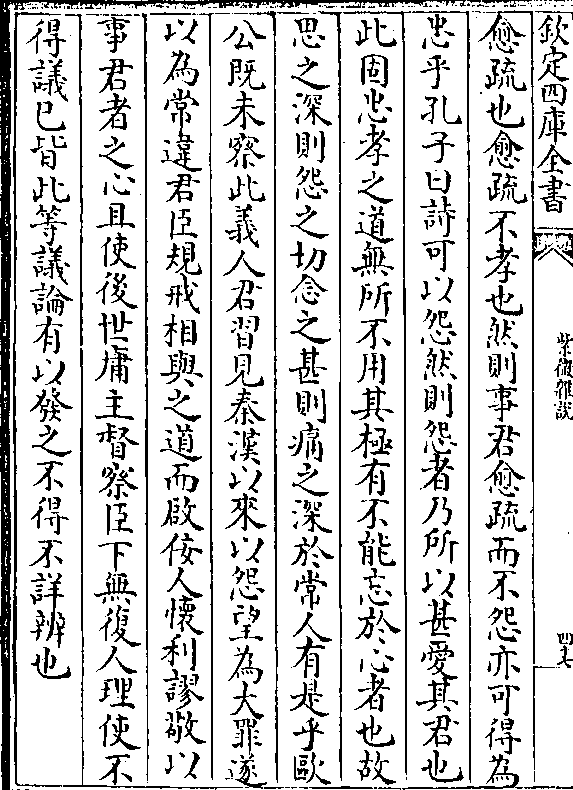 欽定四庫全書
紫微雜說
四十七
愈疏也愈疏不孝也然則事君愈疏而不怨亦可得為
忠乎孔子曰詩可以怨然則怨者乃所以甚愛其君也
此固忠孝之道無所不用其極有不能忘於心者也故
思之深則怨之切念之甚則痛之深於常人有是乎歐
公既未察此義人君習見秦漢以來以怨望為大罪遂
以為常違君臣規戒相與之道而啟佞人懷利謬敬以
事君者之心且使後世庸主督察臣下無復人理使不
得議已皆此等議論有以發之不得不詳辨也